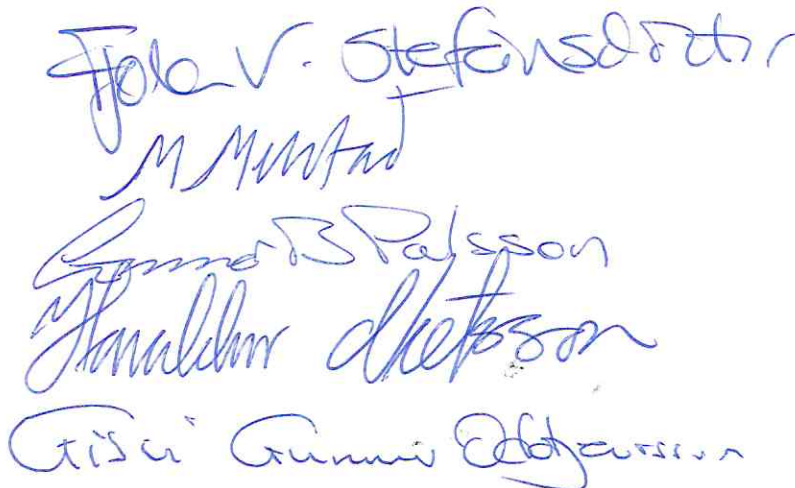 Fjóla V. Stefánsdóttir
M Mehtad
Gunnar B Pálsson
Haraldur
Gísli Gunnar Oddgeirsson